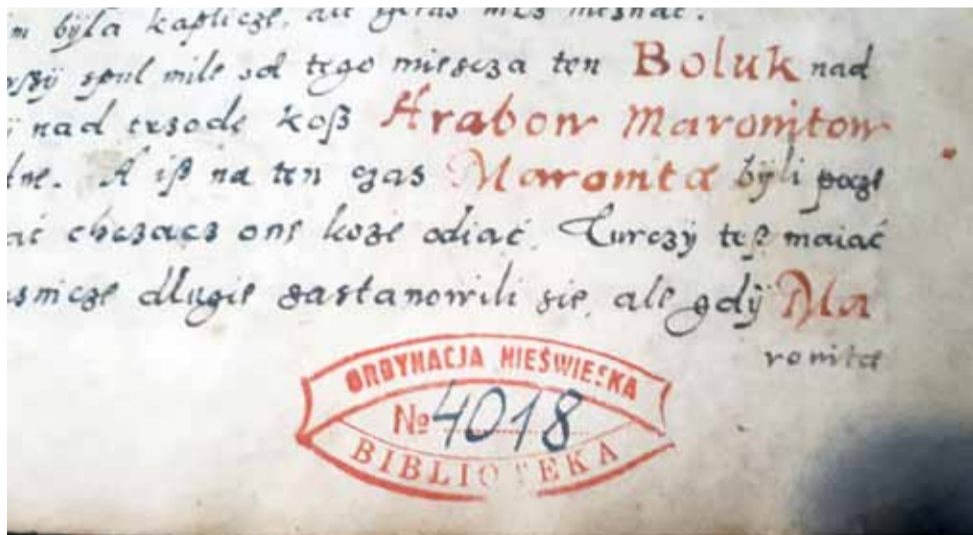 była kapliczę, ale
spul mile od tego miescza ten Boluk nad
nad trzodę koß Hrabow Maronitow
A iß na ten czas Maronitæ byli
chczącz one kozę odiąć. Turczÿ teß maiąć
długie zastanowili się, ale gdÿ Ma
ronitæ
ORDYNACJA NIEŚWIESKA
№ 4018
BIBLIOTEKA